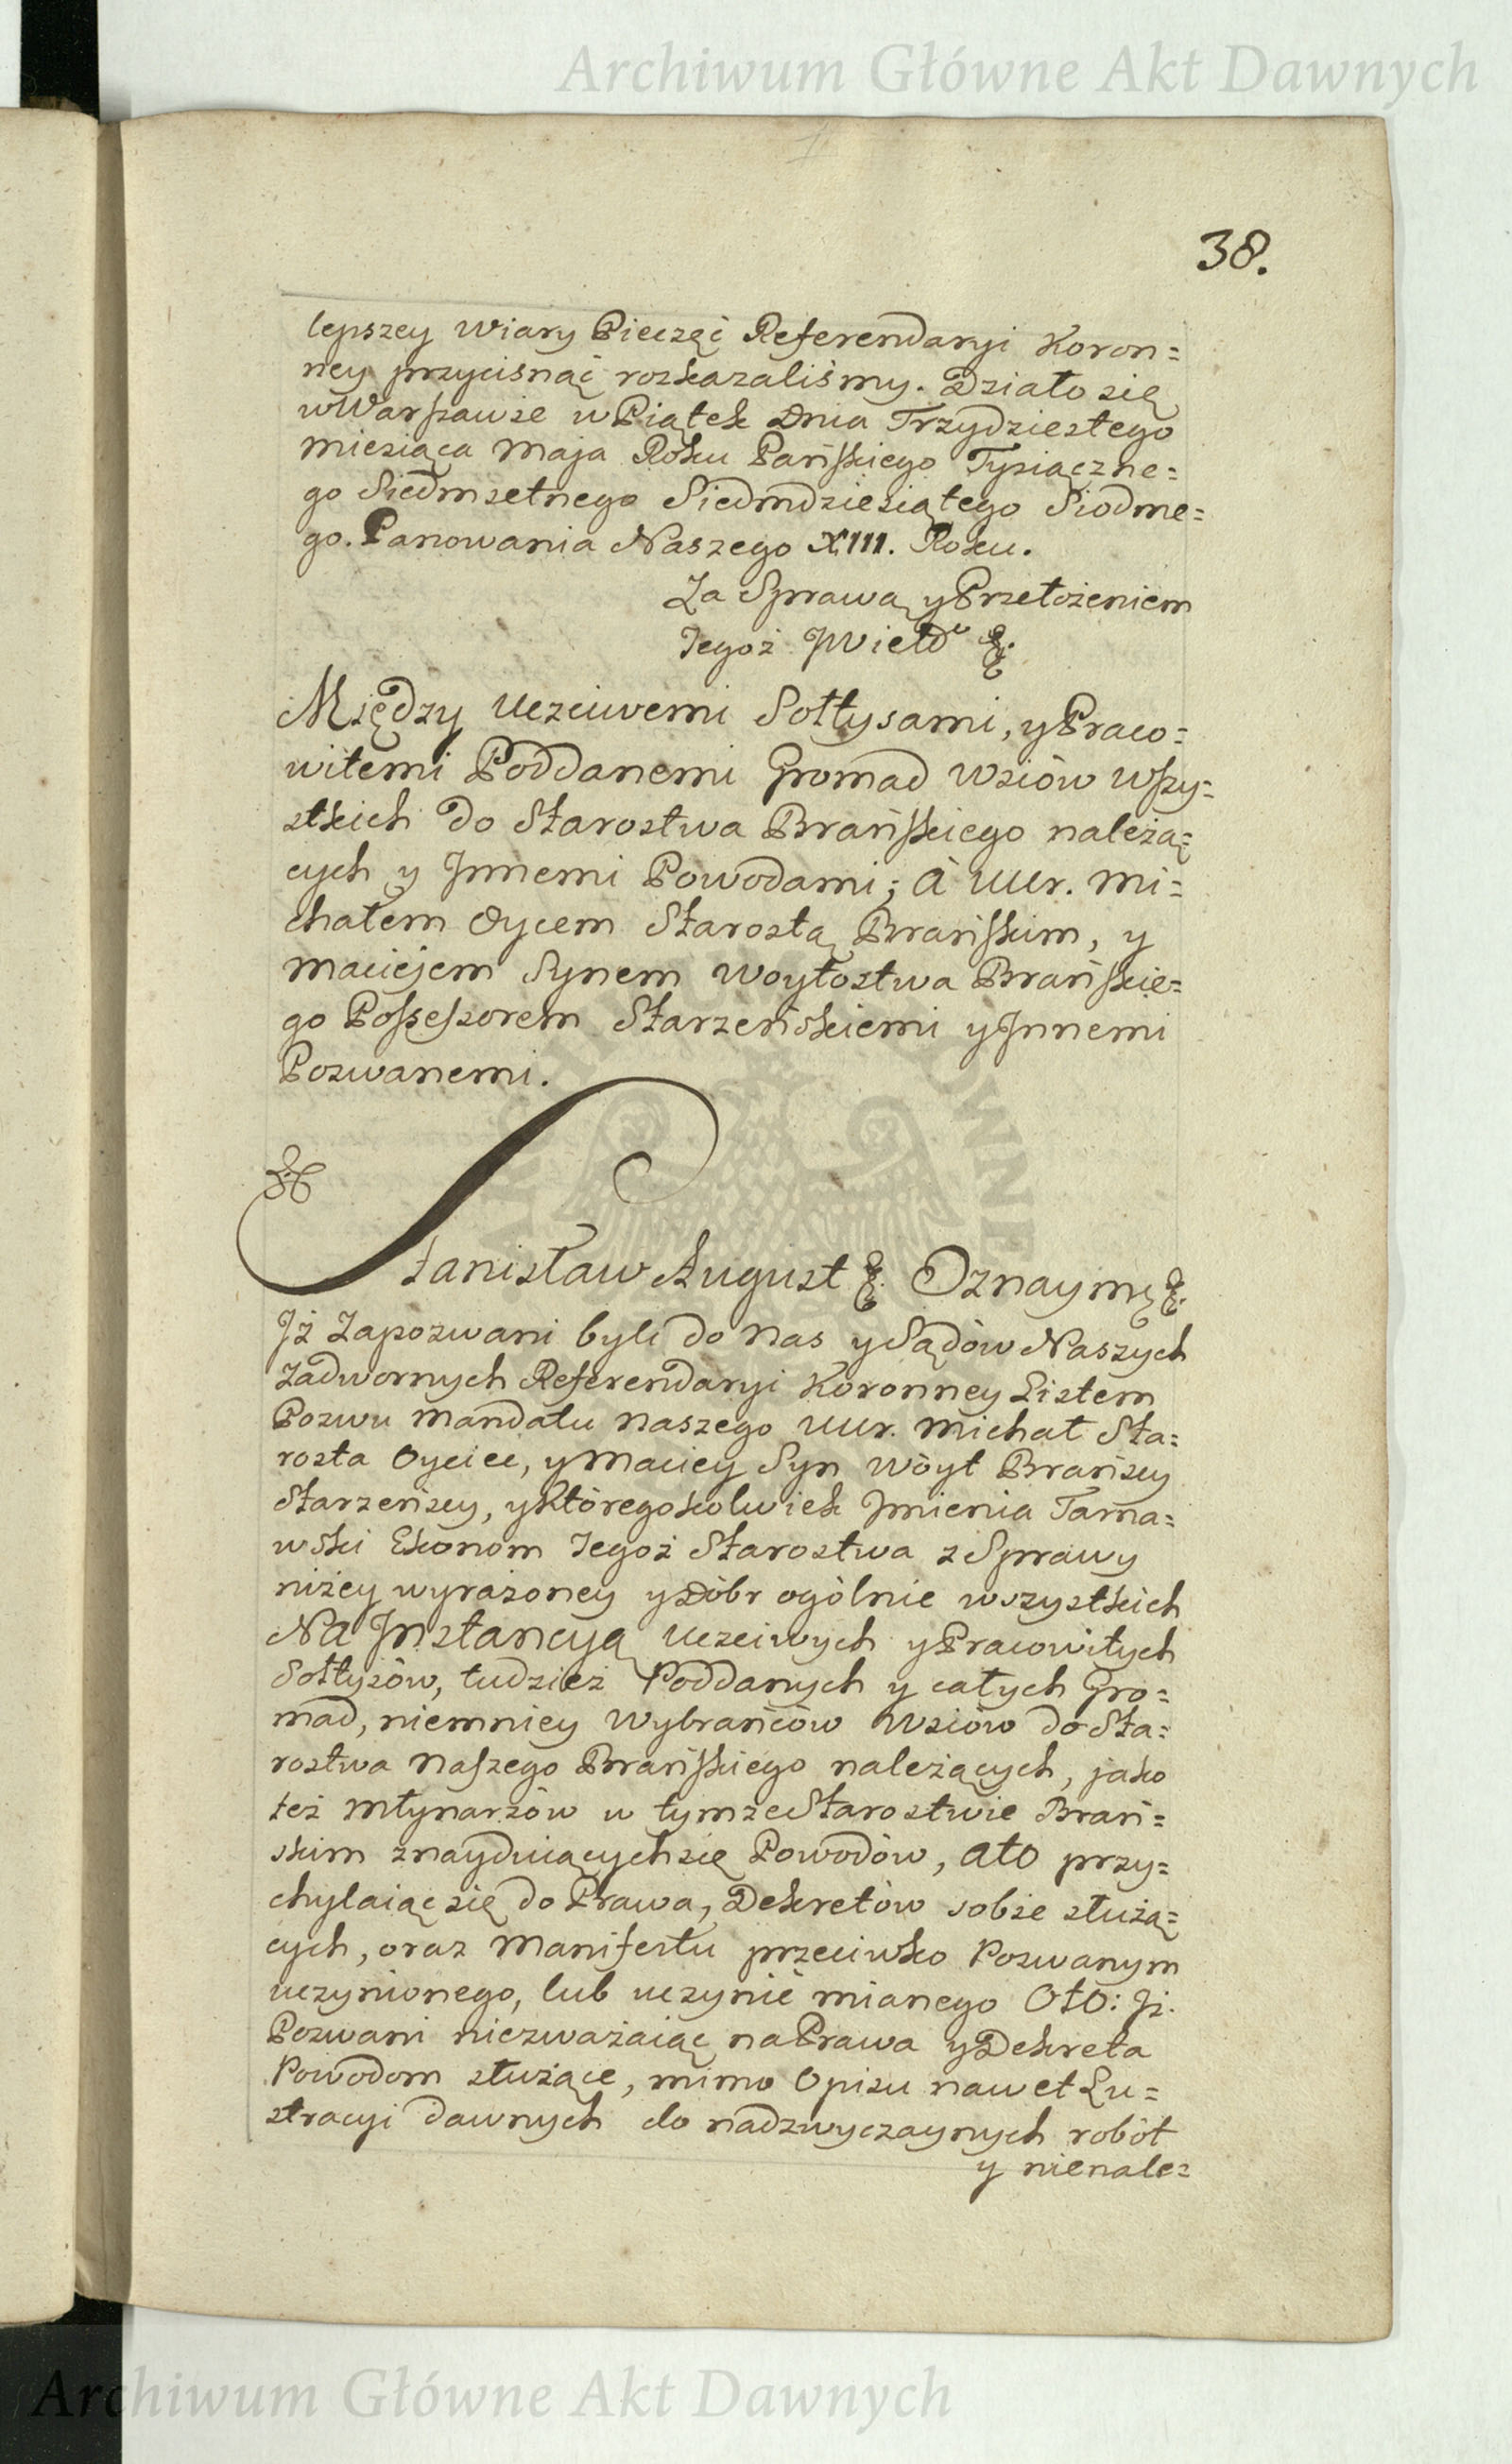 Archiwum Główne Akt Dawnych
38.
lepszey Wiary Pieczęć Referendaryi Koron=
ney przycisnąć rozkazaliśmy. Działo się
w Warszawie w Piątek Dnia Trzydziestego
Miesiąca Maja Roku Pańskiego Tysiączne=
go Siedmsetnego Siedmdziesiątego Siodme=
go. Panowania Naszego XIII. Roku.
Za Sprawą y Przełożeniem
Tegoż JWield &.
Między Uczciwemi Sołtysami, y Praco=
witemi Poddanemi Gromad Wsiów Wszy=
stkich do Starostwa Brańskiego należą=
cych y Jnnemi Powodami; à UUr. Mi=
chałem Oycem Starostą Brańskim, y
Maciejem Synem Woytostwa Brańskie=
go Possessorem Starzeńskiemi y Jnnemi
Pozwanemi.
Stanisław August &. Oznaymę &.
Jż Zapozwani byli do Nas y Sądów Naszych
Zadwornych Referendaryi Koronney Listem
Pozwu Mandatu Naszego UUr. Michał Sta=
rosta Oyciec, y Maciey Syn Wóyt Brańscy
Starzeńscy, y Któregokolwiek Jmienia Tarna=
wski Ekonom Tegoż Starostwa z Sprawy
niżey wyrażoney y Dóbr ogólnie wszystkich
Na Jnstancyą Uczciwych y Pracowitych
Sołtysów, tudzież Poddanych y całych Gro=
mad, niemniey Wybrańców Wsiów do Sta=
rostwa Naszego Brańskiego należących, jako
też Młynarzów w tymże Starostwie Brań=
skim znayduiących się Powodów, Ato przy=
chylaiąc się do Prawa, Dekretów sobie służą=
cych, oraz Manifestu przeciwko Pozwanym
uczynionego, lub uczynić mianego Oto: Jż.
Pozwani niezważaiąc na Prawa y Dekreta
Powodom służące, mimo Opisu nawet Lu=
stracyi dawnych do nadzwyczaynych robót
y nienale=
Archiwum Główne Akt Dawnych